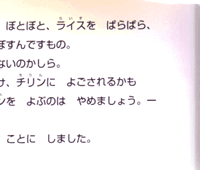 ぽとぽと、ライスを　ぱらぱら、
ぼすんですもの。
ないのかしら。
け、チリンに　よごされるかも
ンを　よぶのは　やめましょう。ー
ことに　しました。